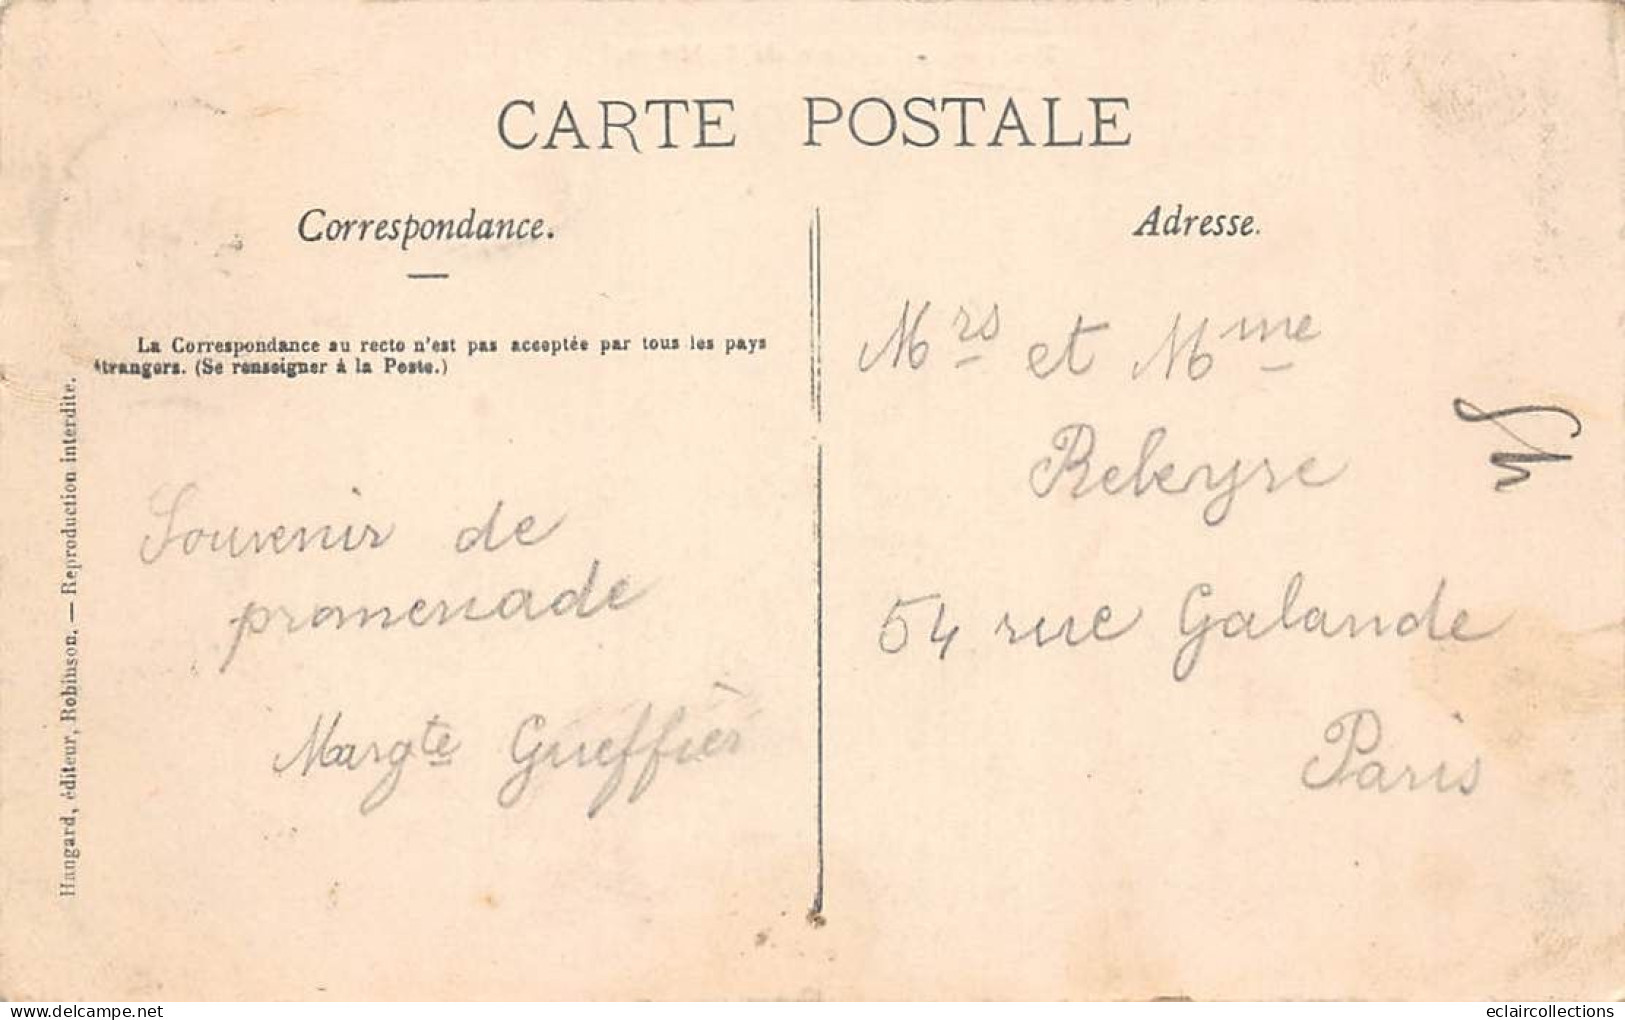 CARTE POSTALE
Correspondance.
Adresse.
La Correspondance au recto n'est pas acceptée par tous les pays
étrangers. (Se renseigner à la Poste.)
Hangard, éditeur, Robinson. — Reproduction interdite.
Souvenir de
promenade
Margte Gueffier
Mrs et Mme
54 rue Galande
Paris
eclaircollections